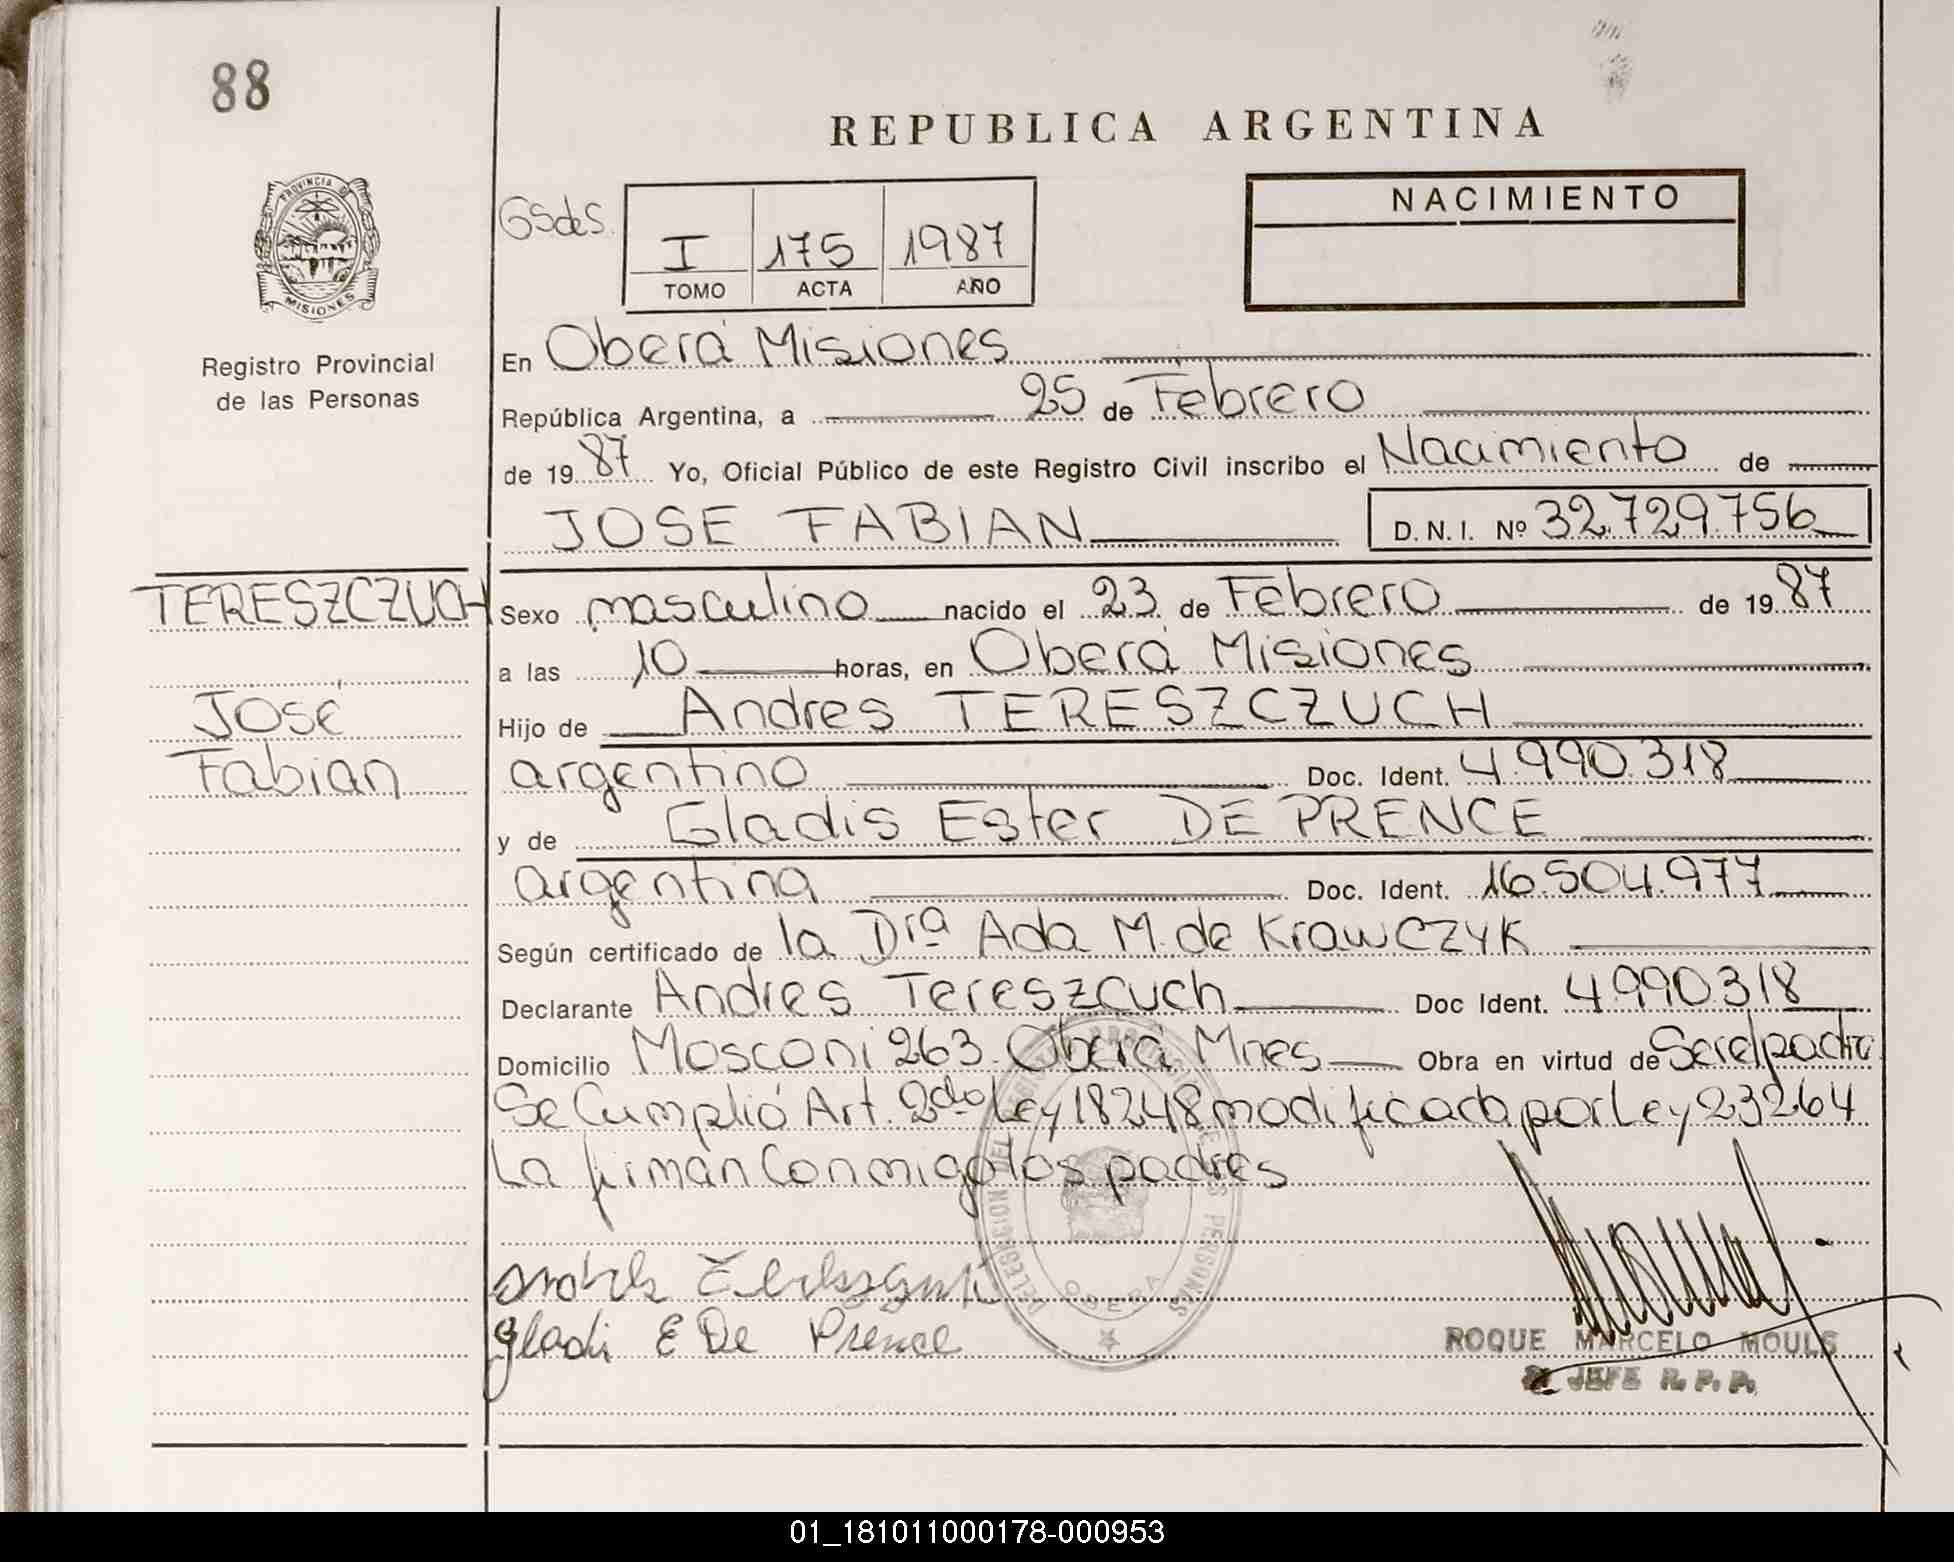 88
REPUBLICA ARGENTINA
PROVINCIA D
MISIONES
Registro Provincial
de las Personas
GSdeS.
I 175 1987
TOMO ACTA AÑO
NACIMIENTO
En Oberá Misiones
República Argentina, a 25 de Febrero
de 19 87 Yo, Oficial Público de este Registro Civil inscribo el Nacimiento de
JOSE FABIAN D.N.I. Nº 32.729.756
TERESZCZUCH
José
Fabian
Sexo masculino nacido el 23 de Febrero de 19 87
a las 10 horas, en Oberá Misiones
Hijo de Andres TERESZCZUCH
argentino Doc. Ident. 4.990.318
y de Gladis Ester DE PRENCE
argentina Doc. Ident. 16.504.977
Según certificado de la Drª Ada M. de Krawczyk
Declarante Andres Tereszcuch Doc Ident. 4.990.318
Domicilio Mosconi 263. Oberá Mnes Obra en virtud de Ser el padre
Se Cumplió Art. 2do Ley 18248 modificada por Ley 23264
La firman Conmigo los padres
DELEGACION DEL REGISTRO PROVINCIAL DE LAS PERSONAS
OBERA
Gladi E De Prence
ROQUE MARCELO MOULS
JEFE R.P.P.
01_181011000178-000953